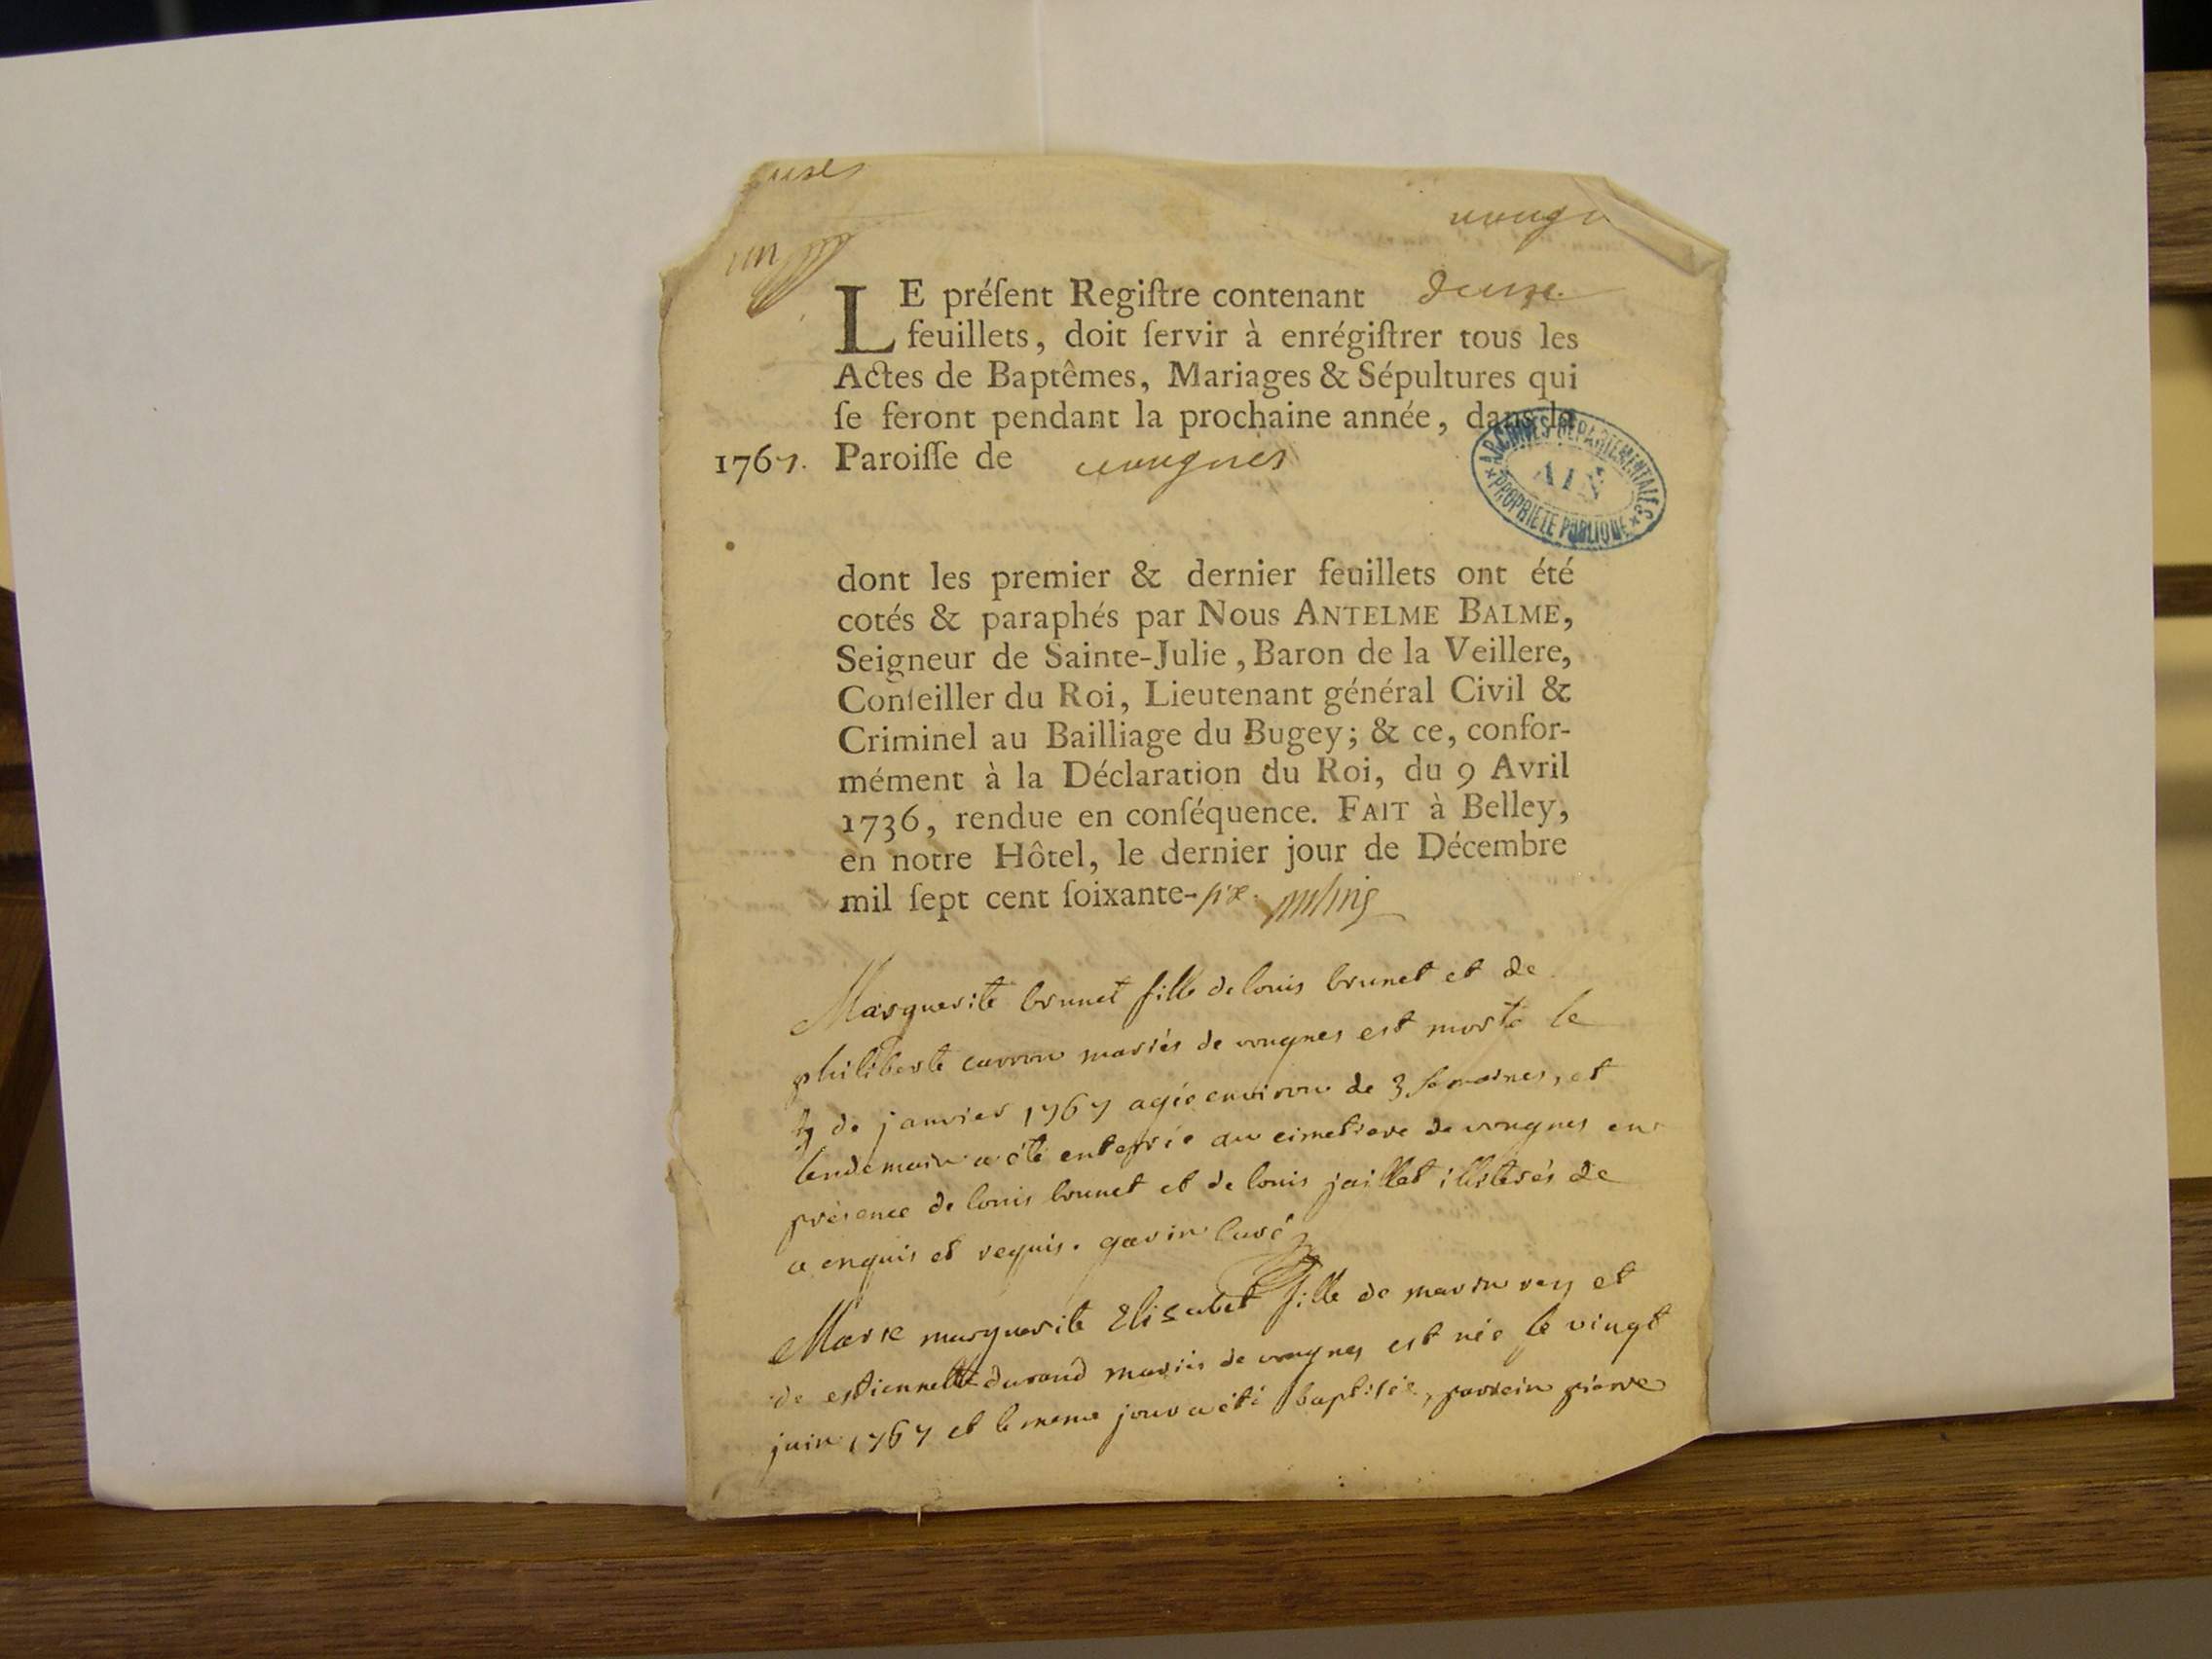 un
LE préſent Regiſtre contenant douze
feuillets, doit ſervir à enrégiſtrer tous les
Actes de Baptêmes, Mariages & Sépultures qui
ſe feront pendant la prochaine année, dans la
1767. Paroiſſe de vongnes
ARCHIVES DEPARTEMENTALES
AIN
PROPRIETE PUBLIQUE
dont les premier & dernier feuillets ont été
cotés & paraphés par Nous ANTELME BALME,
Seigneur de Sainte-Julie, Baron de la Veillere,
Conſeiller du Roi, Lieutenant général Civil &
Criminel au Bailliage du Bugey; & ce, confor-
mément à la Déclaration du Roi, du 9 Avril
1736, rendue en conſéquence. FAIT à Belley,
en notre Hôtel, le dernier jour de Décembre
mil ſept cent ſoixante-six.
Marguerite brunet fille de louis brunet et de
philiberte carron mariés de vongnes est morte le
de janvier 1767 agée environ de 3 semaines, et
lendemain a été enterrée au cimetiere de vongnes en
présence de louis brunet et de louis jaillet illiterés de
ce enquis et requis. gavin Curé
Marie marguerite Elisabet fille de marin rey et
de estiennette durand mariés de vongnes est née le vingt
juin 1767 et le meme jour a été baptisée, parrein pierre